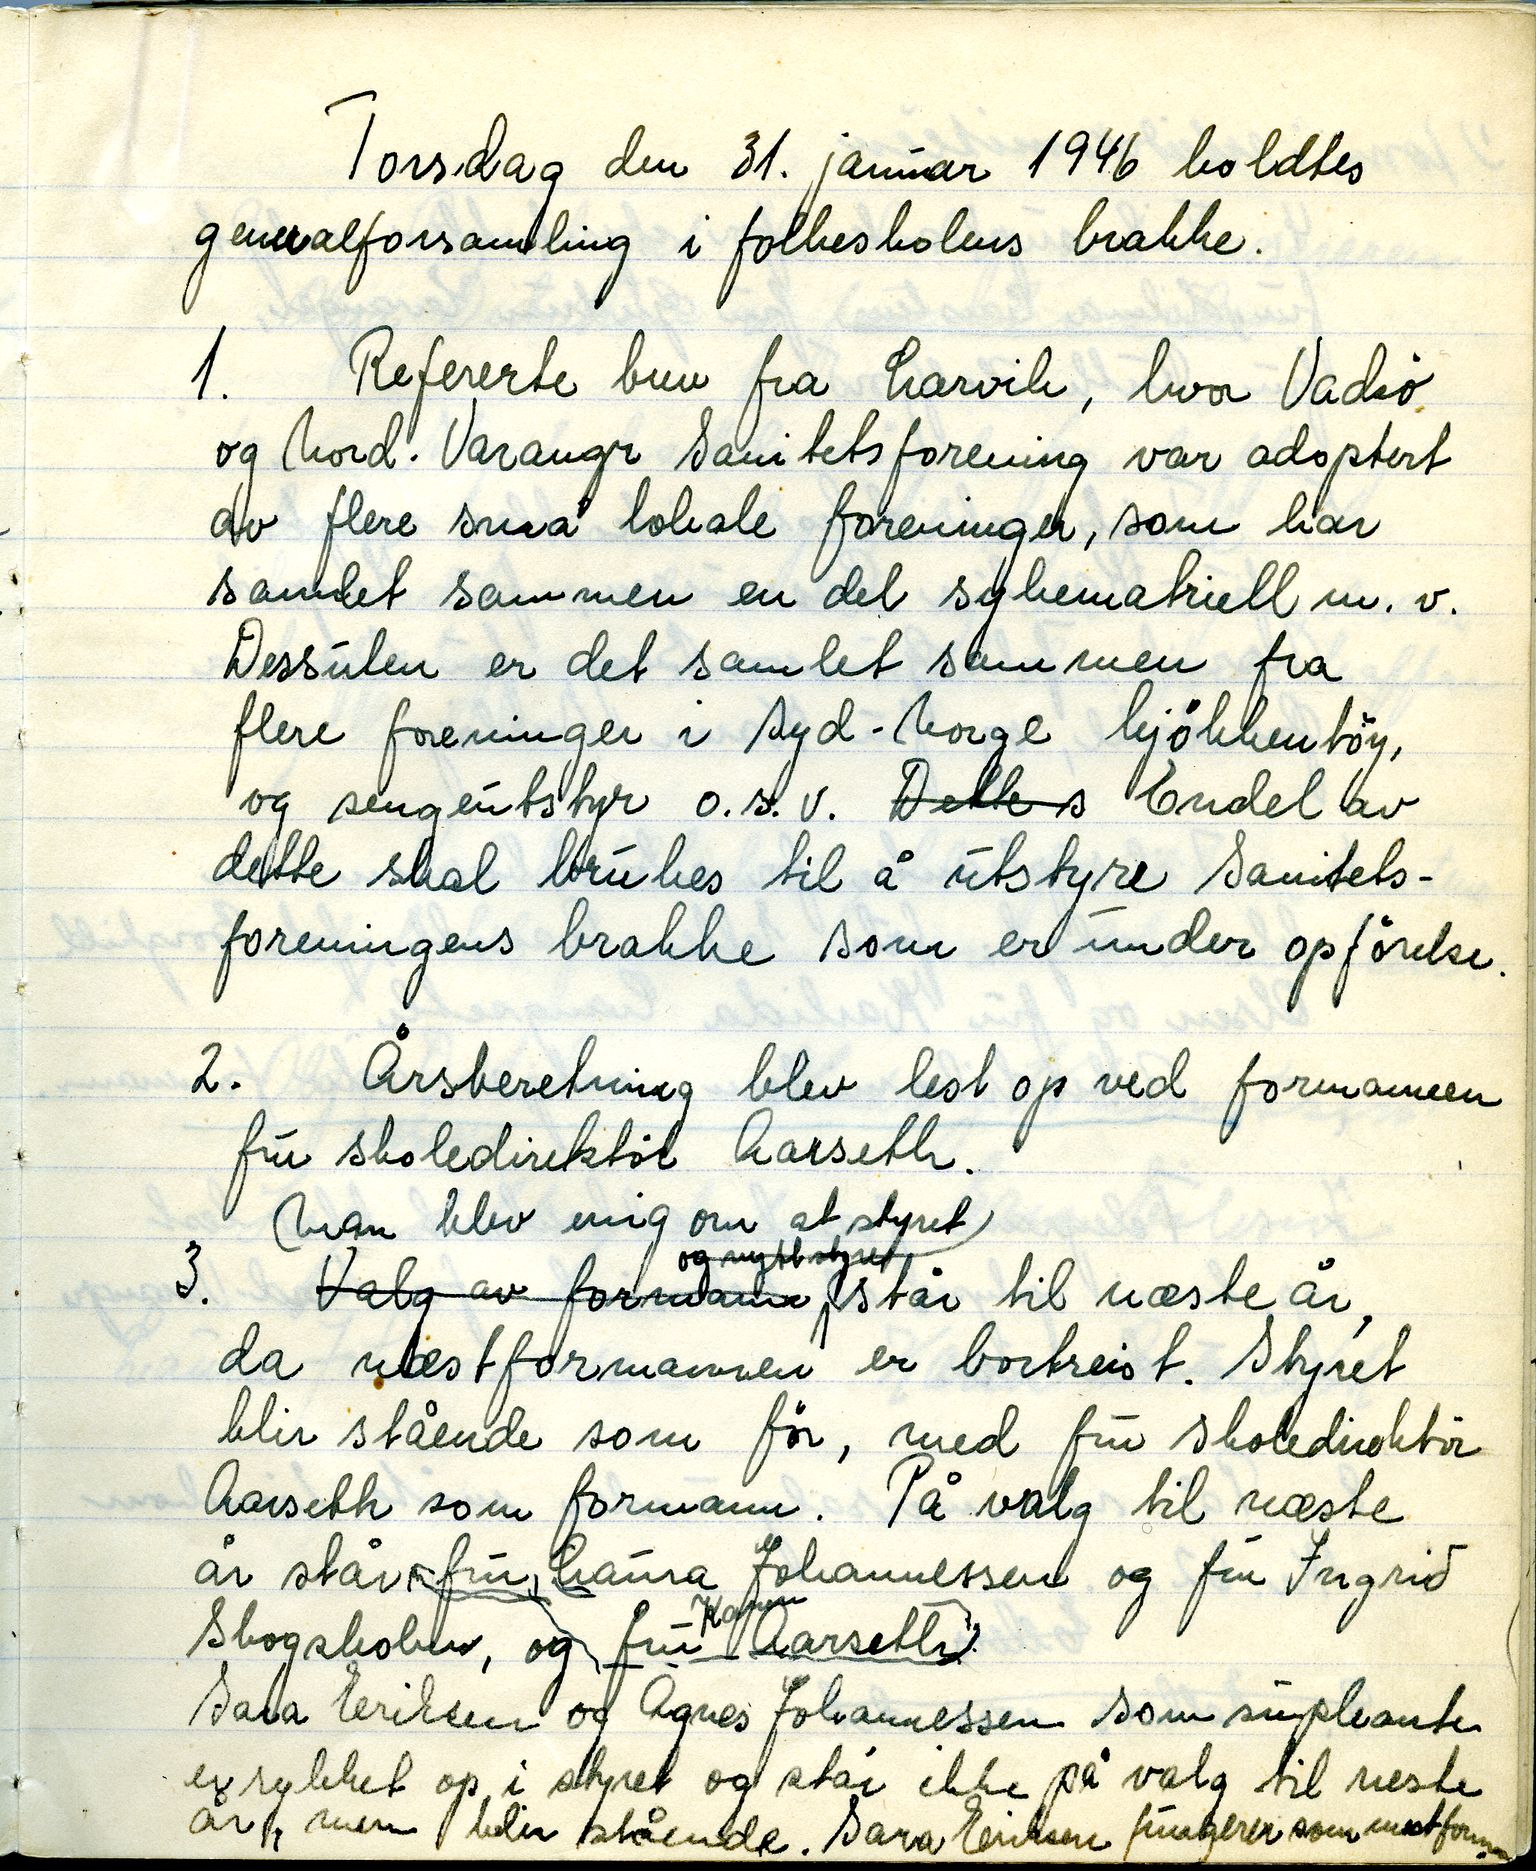 Torsdag den 31. januar 1946 holdtes
generalforsamling i folkeskolens brakke.
1. Refererte brev fra Larvik, hvor Vadsö
og Nord-Varangr Sanitetsforening var adoptert
av flere små lokale foreninger, som har
samlet sammen en del sykematriell m. v.
Dessuten er det samlet sammen fra
flere foreninger i Syd-Norge kjökkentöy,
og sengeutstyr o.s.v. Dette s Endel av
dette skal brukes til å utstyre Sanitets-
foreningens brakke som er under opförelse.
2. Årsberetning blev lest op ved formannen
fru skoledirektör Aarseth.
Man blev enig om at styret
og nytt styret
3. Valg av formann, står til næste år,
da næstformannen er bortreist. Styret
blir stående som för, med fru skoledirektör
Aarseth som formann. På valg til næste
år står fru Laura Johannessen og fru Ingrid
Karen
Skogsholm, og fru Aarseth.
Sara Eriksen og Agnes Johannessen som supleanter
er rykket op i styret og står ikke på valg til neste
år, men blir stående. Sara Eriksen fungerer som nestform.